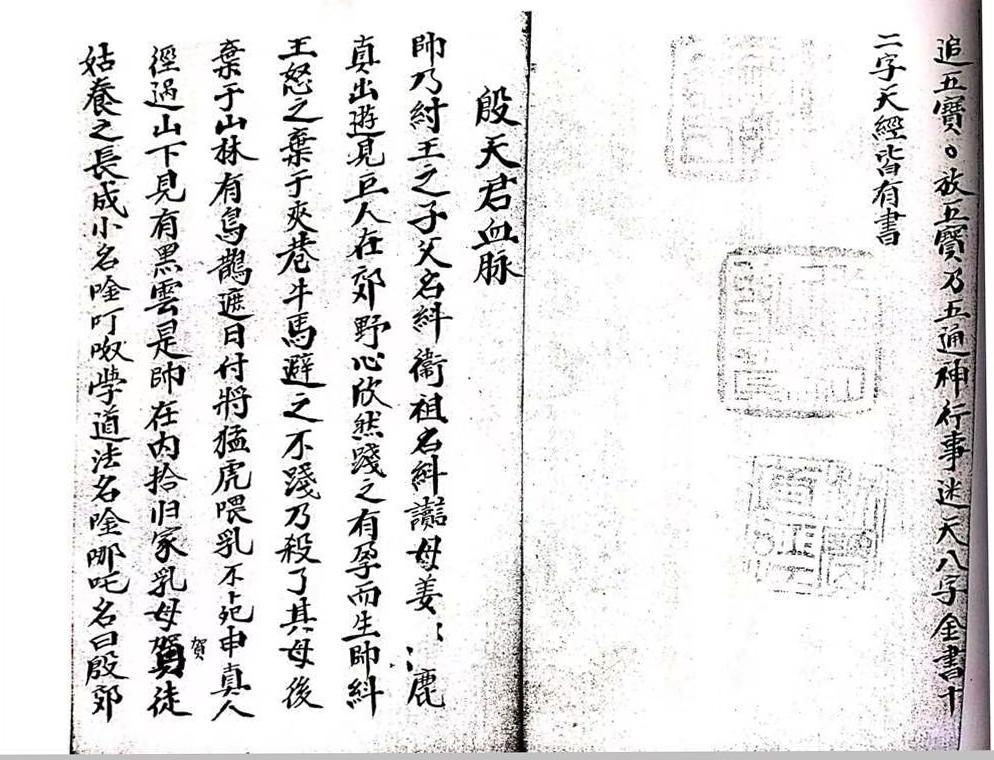 追五寶。放五寶乃五通神行事迷天八字金書十
二字天經皆有書
殷天君血脉
帥乃紂王之子父名紏衞祖名紏母姜鹿
真出遊見巨人在郊野心欣然踐之有孕而生帥紏
王怒之棄于夾巷牛馬避之不踐乃殺了其母後
棄于山林有鳥鵲遮日付將猛虎喂乳不死申真人
徑過山下見有黑雲是帥在内拾归家乳母賀徒
姑養之長成小名唫叮呶學道法名唫哪吒名曰殷郊